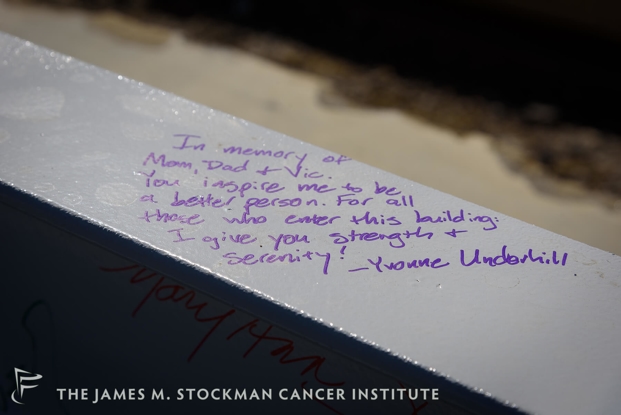 In memory of
Mom, Dad + Vic.
You inspire me to be
a better person. For all
those who enter this building:
I give you strength +
serenity! -Yvonne Underhill
Mary Ann
THE JAMES M. STOCKMAN CANCER INSTITUTE